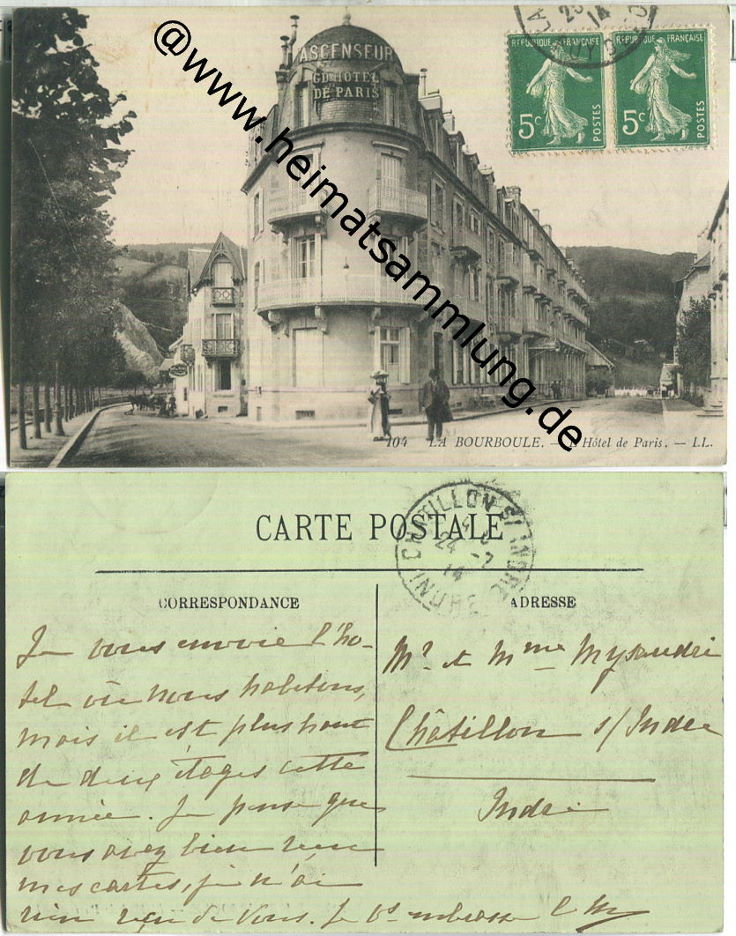 ASCENSEUR
GD HOTEL
DE PARIS
14
REPUBLIQUE FRANÇAISE
5c
POSTES
REPUBLIQUE FRANÇAISE
5c
POSTES
@www.heimatsammlung.de
104 LA BOURBOULE. — L'Hôtel de Paris. — LL.
CARTE POSTALE
CHATILLON S! INDRE
24 -7
14
INDRE
CORRESPONDANCE
ADRESSE
Je vous envoie l'hô-
tel où nous habitons,
mais il est plus haut
de deux étages cette
année. Je pense que
vous avez bien reçu
mes cartes, je n'ai
rien reçu de vous. Je vs embrasse
Mr et Mme
Châtillon s/ Indre
Indre